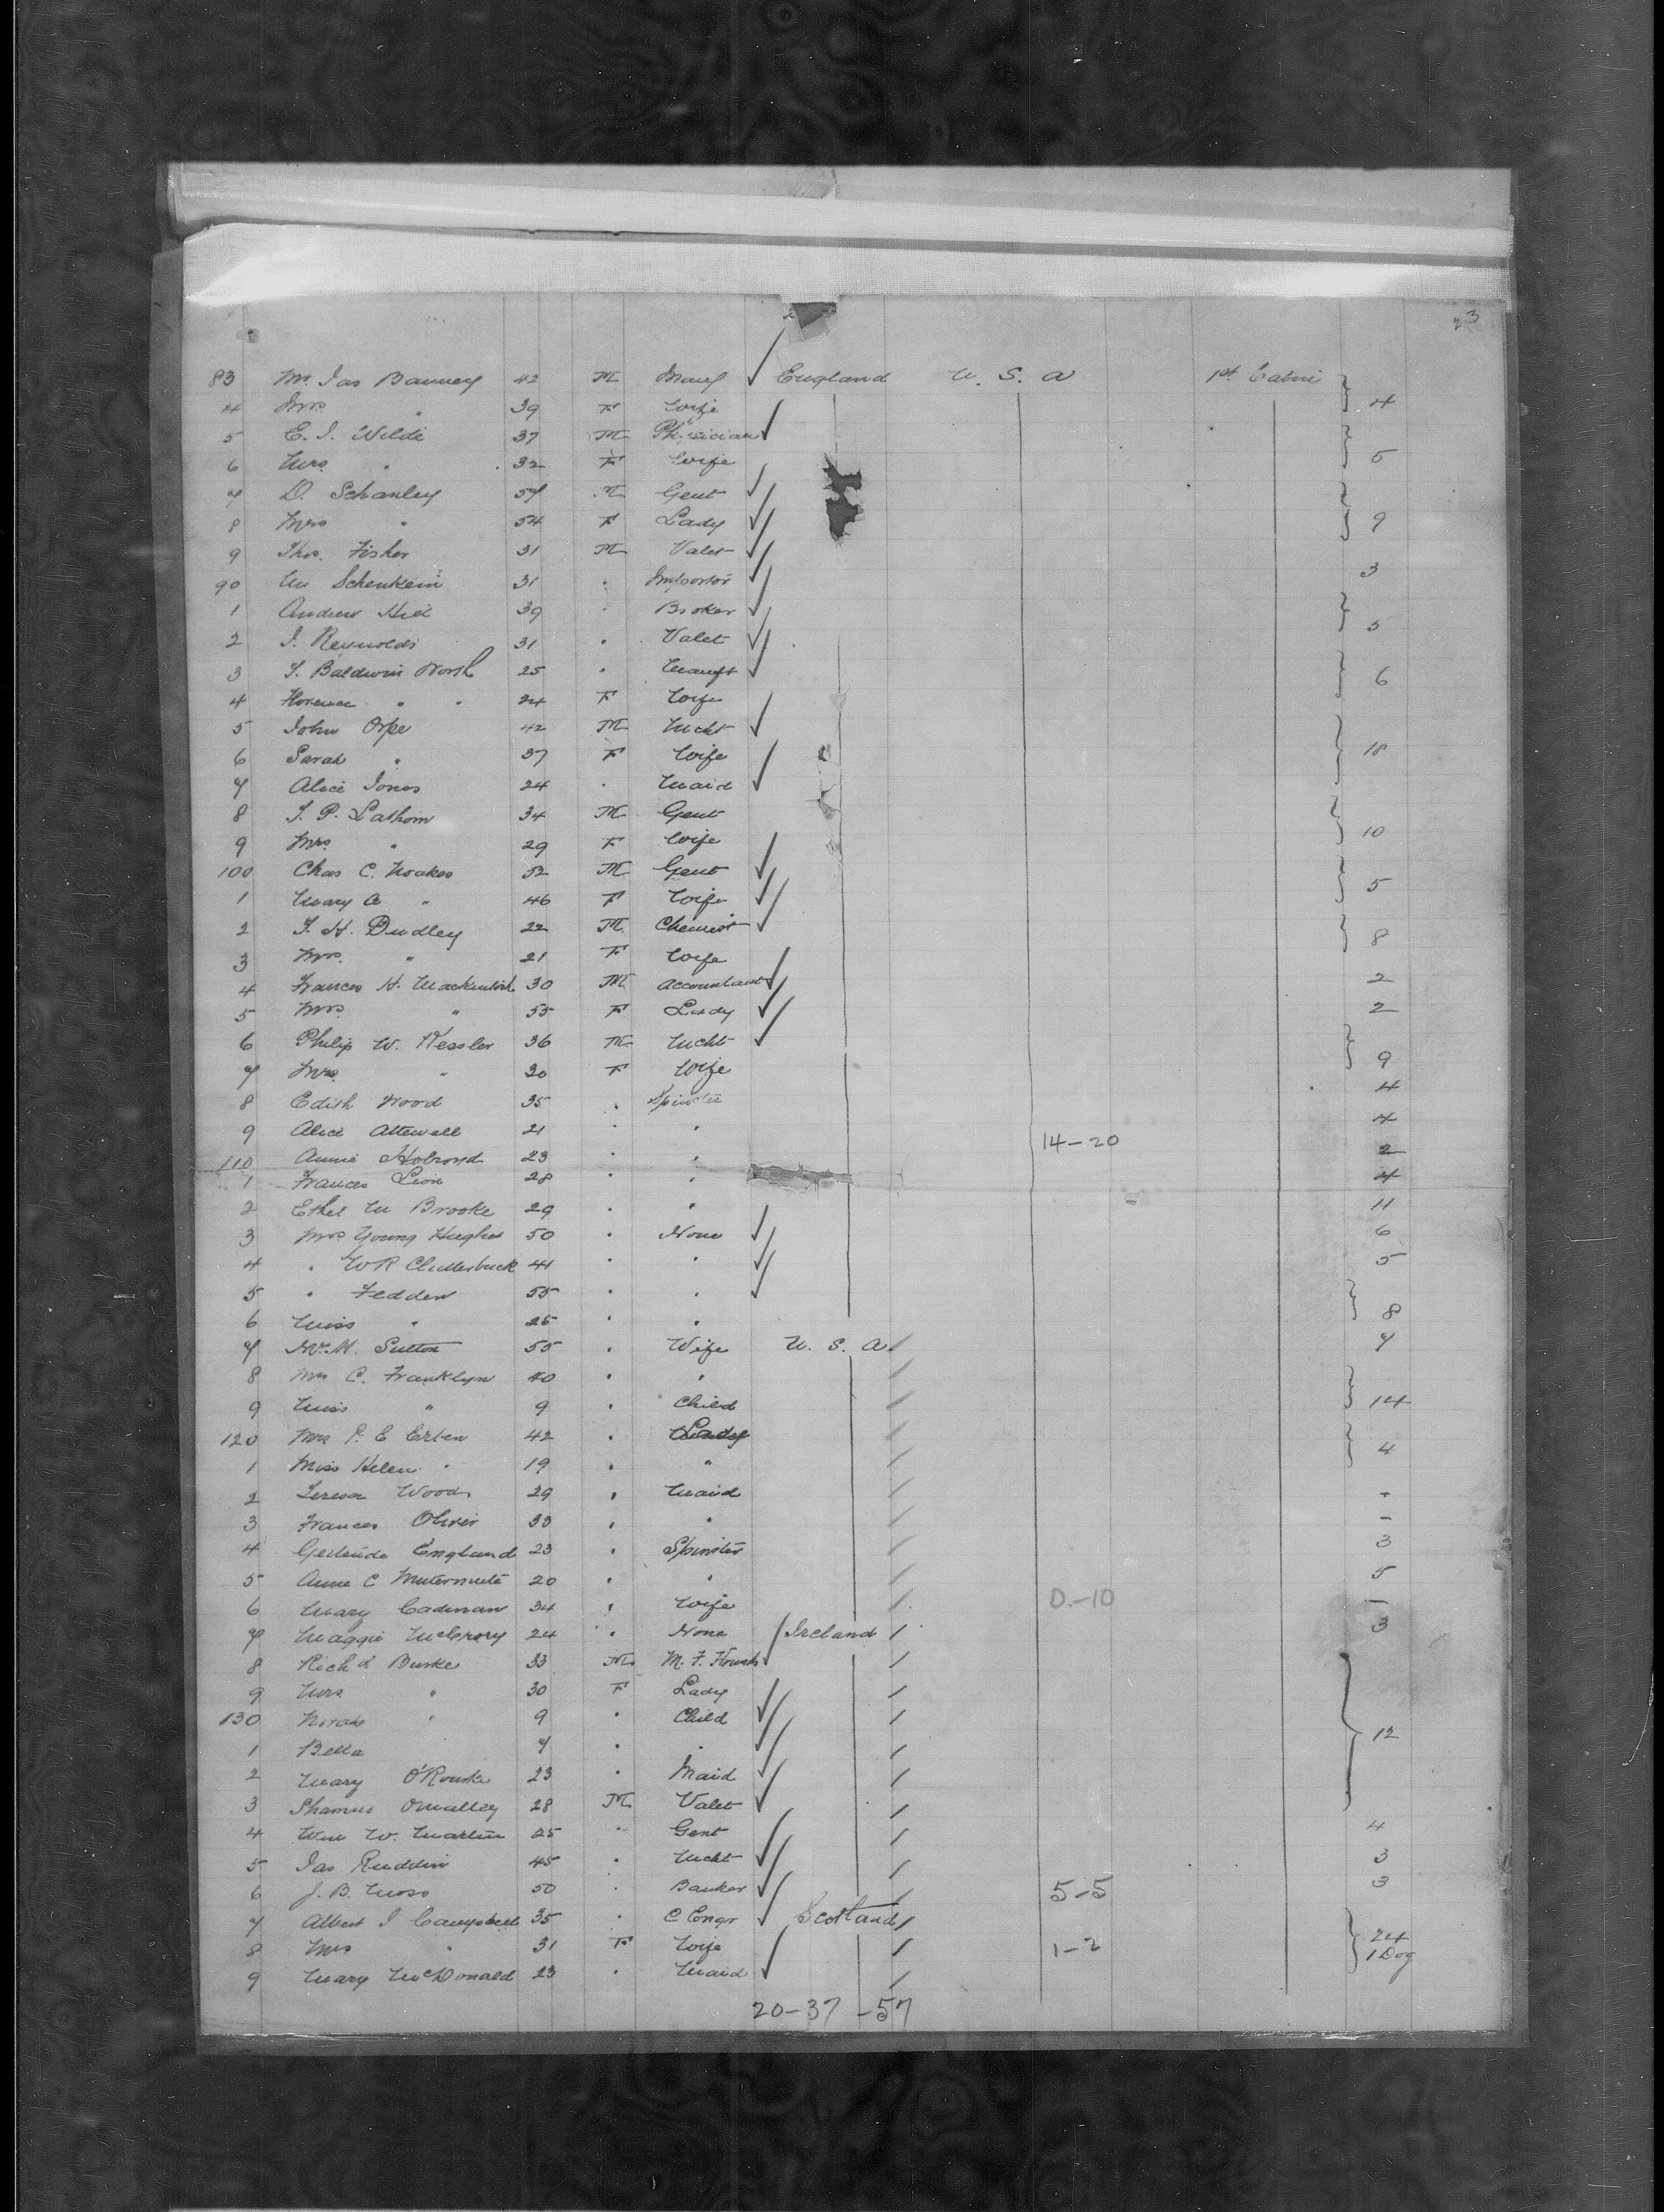 3
83 Mr. Jas Banney 42 M Manf England U. S. A 1st Cabin
4 Mrs " 39 F Wife 4
5 E. J. Wilde 37 M Physician
6 Mrs " 32 F Wife 5
7 D. Schanley 57 M Gent
8 Mrs " 54 F Lady 9
9 Thos. Fisher 31 M Valet
90 M Schenkein 31 " Importer 3
1 Andrew Hill 39 " Broker
2 J. Reynolds 31 " Valet 5
3 T. Baldwin North 25 " Manft
4 Florence " " 24 F Wife 6
5 John Orpe 42 M Mcht
6 Sarah " 37 F Wife 18
7 Alice Jones 24 " Maid
8 T. P. Lathom 34 M Gent
9 Mrs " 29 F Wife 10
100 Chas C. Noakes 52 M Gent
1 Mary A " 46 F Wife 5
2 T. H. Dudley 22 M Chemist
3 Mrs. " 21 F Wife 8
4 Frances H. Mackintosh 30 M Accountant 2
5 Mrs. " 55 F Lady 2
6 Philip W. Kessler 36 M Mcht
7 Mrs. " 30 F Wife 9
8 Edith Wood 35 " Spinster 4
9 Alice Attewell 21 " " 14-20 4
110 Annie 23 " " 2
1 Frances Lion 28 " " 4
2 Ethel M Brooke 29 " " 11
3 Mrs Young Hughes 50 " None 6
4 " W R Clutterbuck 41 " " 5
5 " Fedden 55 " "
6 Miss " 25 " " 8
7 M. Sutton 55 " Wife U. S. A. 7
8 Mrs C. Franklyn 40 " "
9 Miss " 9 " Child 14
120 Mrs P. E Erben 42 " Lady
1 Miss Helen " 19 " " 4
2 Teresa Woods 29 " Maid -
3 Frances Oliver 33 " " -
4 Gertrude England 23 " Spinster 3
5 Anne C 20 " " 5
6 Mary Cadman 34 " Wife 0-10 -
7 Maggie McCrory 24 " None Ireland 3
8 Richd Burke 33 M M. F. Hounds
9 Mrs " 30 F Lady
130 Norah " 9 " Child
1 Bella " 7 " " 12
2 Mary O'Rourke 23 " Maid
3 Shamus Omalley 28 M Valet
4 Wm W. Martin 25 " Gent 4
5 Jas Ruddin 45 " Mcht 3
6 J. B. Moss 50 " Banker 5-5 3
7 Albert J Campbell 35 " C Engr Scotland
8 Mrs " 31 F Wife 1-2 24 1 Dog
9 Mary McDonald 23 " Maid
20-37-57